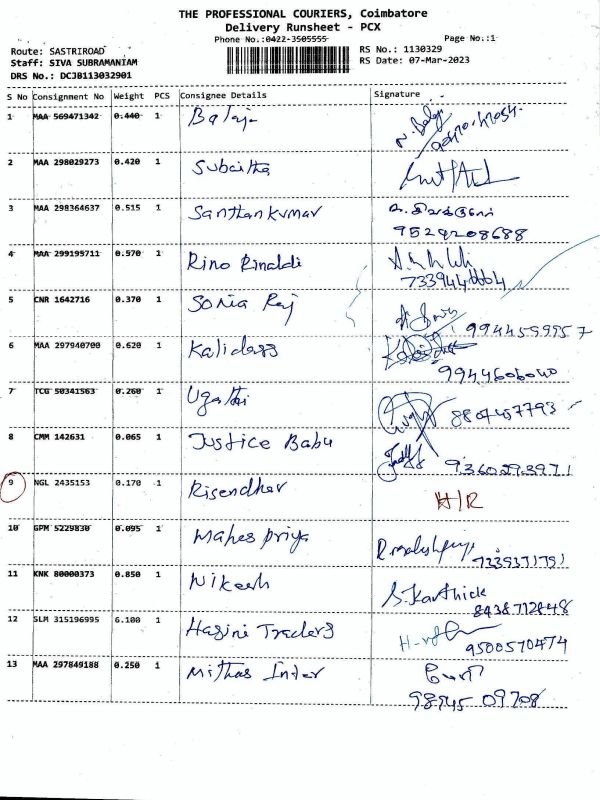 THE PROFESSIONAL COURIERS, Coimbatore
Delivery Runsheet - PCX
Phone No.:0422-3505555
Page No.:1
Route: SASTRIROAD
Staff: SIVA SUBRAMANIAM
DRS No.: DCJB113032901
RS No.: 1130329
RS Date: 07-Mar-2023
S No Consignment No Weight PCS Consignee Details Signature
1 MAA 569471342 0.440 1 Balaji
2 MAA 298029273 0.420 1 Subaitha
3 MAA 298364637 0.515 1 Santhankumar
9529208688
4 MAA 299195711 0.570 1 Rino Rinaldi
5 CNR 1642716 0.370 1 Sonia Raj
9944599957
6 MAA 297940700 0.620 1 Kalidass
9944606040
7 TCG 50341563 0.260 1 Ugathi
8807457793
8 CMM 142631 0.065 1 Justice Babu
9360293971
9 NGL 2435153 0.170 1 Risendher H/R
10 GPM 5229830 0.095 1 Mahes priya
7339371791
11 KNK 80000373 0.850 1 Nikesh S. Karthick
8438712848
12 SLM 315196995 6.100 1 Hasini Traders
9500570474
13 MAA 297849188 0.250 1 Mithas Inter
98945 09708